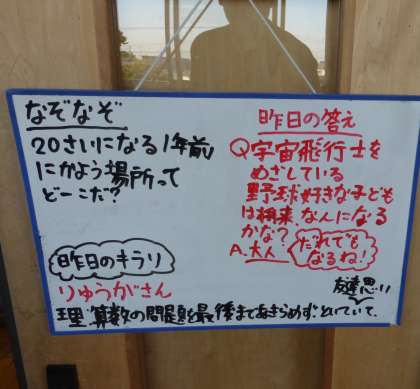 なぞなぞ
20さいになる1年前
にかよう場所って
どーこだ?
昨日の答え
Q宇宙飛行士を
めざしている
野球好きな子ども
は将来、なんになる
かな?
A.大人
だれでも
なるね!
昨日のキラリ
りゅうがさん
友達思い
理 算数の問題を最後まであきらめず、といていて、